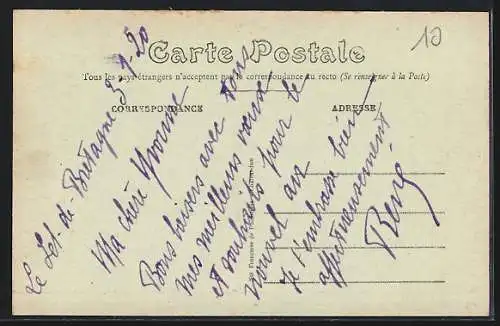 Carte Postale
Tous les pays étrangers n'acceptent pas la correspondance au recto (Se renseigner à la Poste)
CORRESPONDANCE
ADRESSE
10
Le Let-de-Bretagne 3-1-20
Ma chère Yvonne
Bons baisers avec tous
mes meilleurs vœux
et souhaits pour le
nouvel an
Je t'embrasse bien
affectueusement
René